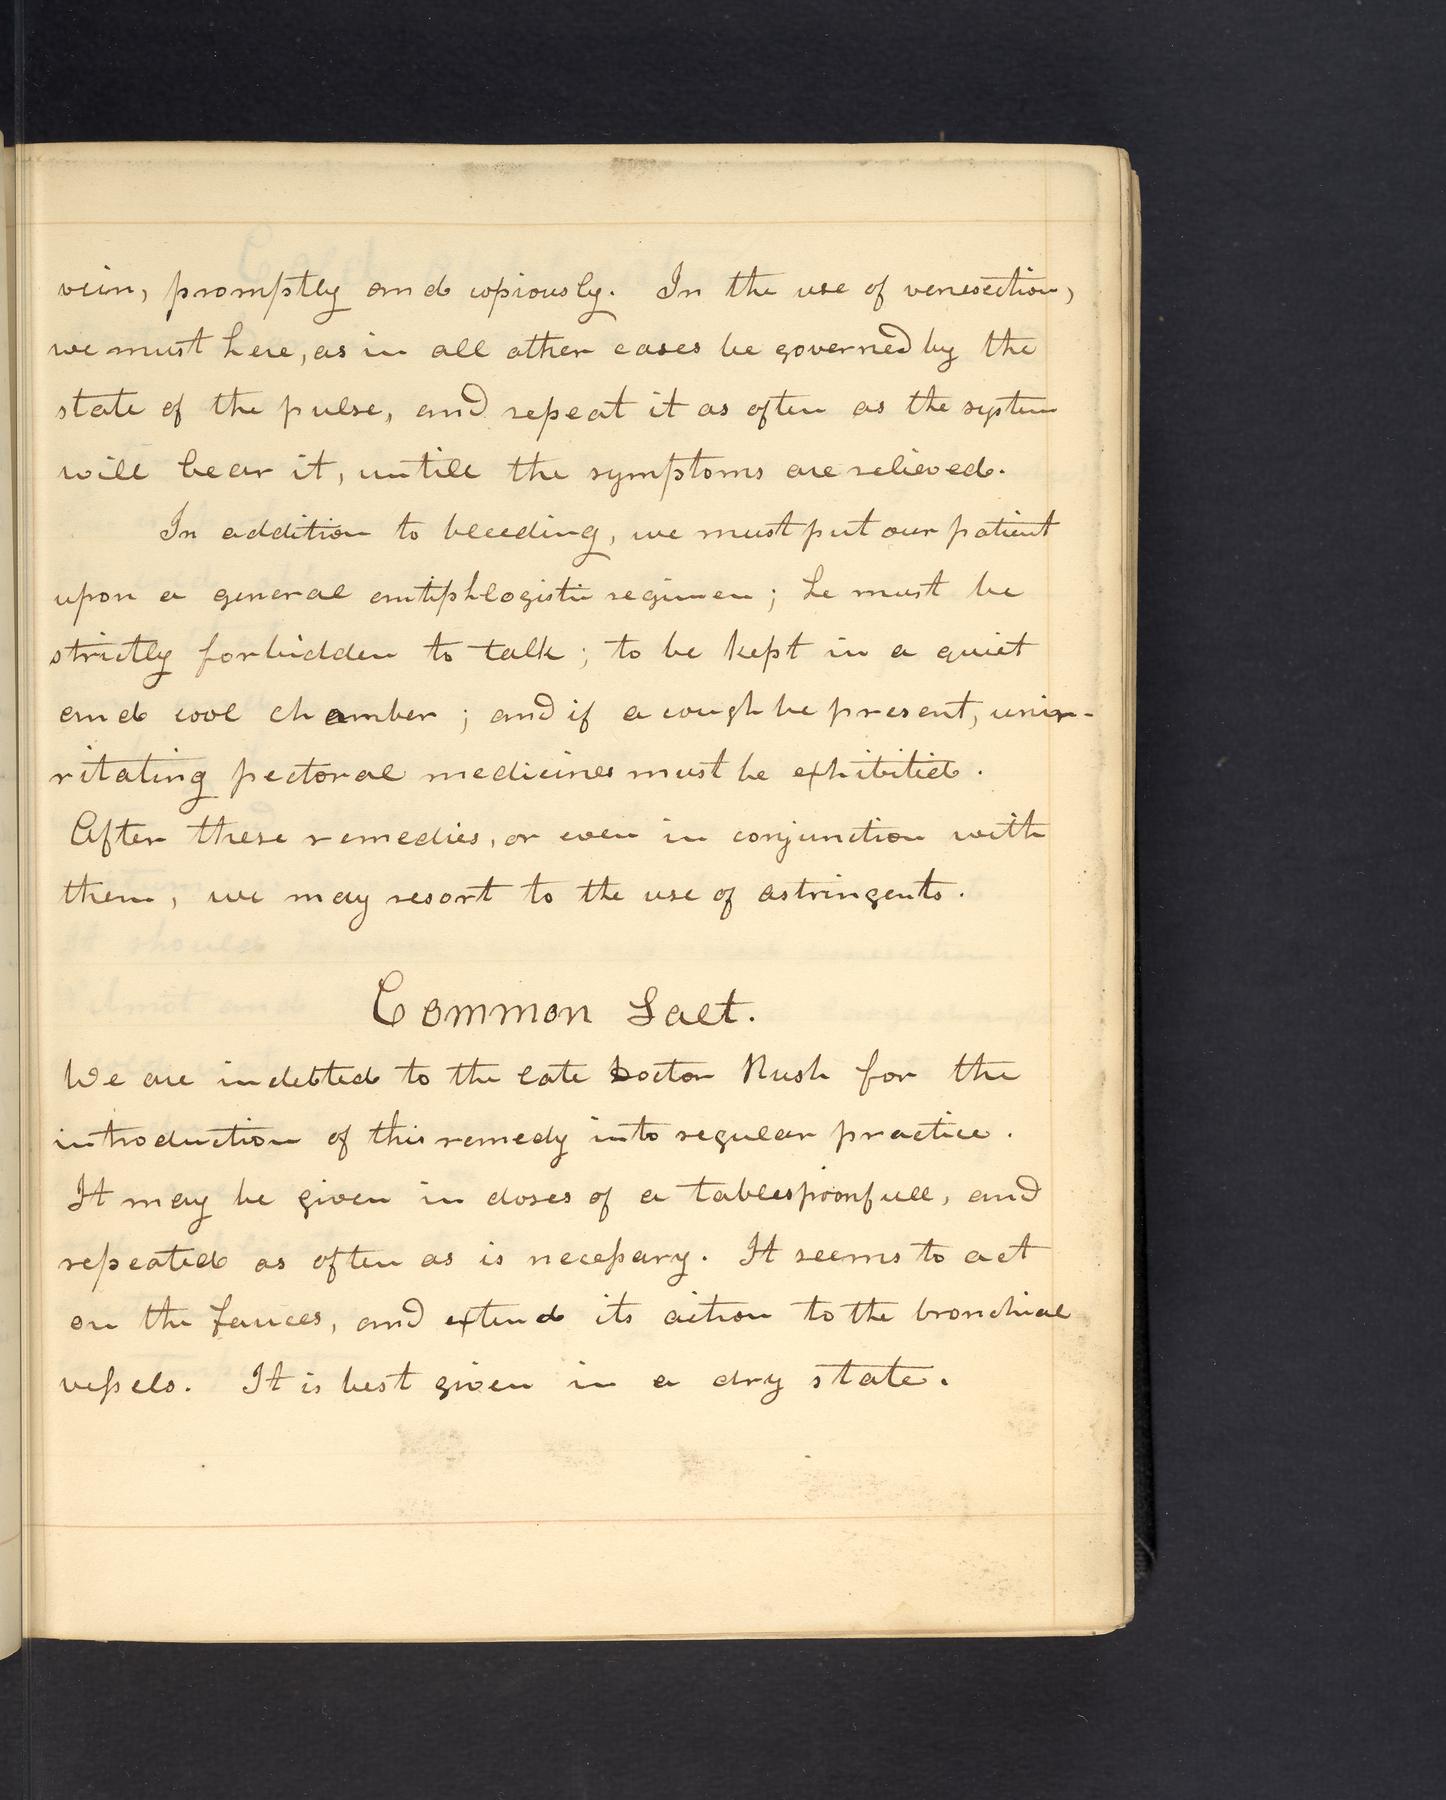 vein, promptly and copiously. In the use of venesection,
we must here, as in all other cases be governed by the
state of the pulse, and repeat it as often as the system
will bear it, untill the symptoms are relieved.
In addition to bleeding, we must put our patient
upon a general antiphlogistic regimen; he must be
strictly forbidden to talk; to be kept in a quiet
and cool chamber; and if a cough be present, unir-
ritating pectoral medicines must be exhibited.
After these remedies, or even in conjunction with
them, we may resort to the use of astringents.
Common Salt.
We are indebted to the late Doctor Rush for the
introduction of this remedy into regular practice.
It may be given in doses of a tablespoonfull, and
repeated as often as is necessary. It seems to act
on the fauces, and extend its action to the bronchial
vessels. It is best given in a dry state.